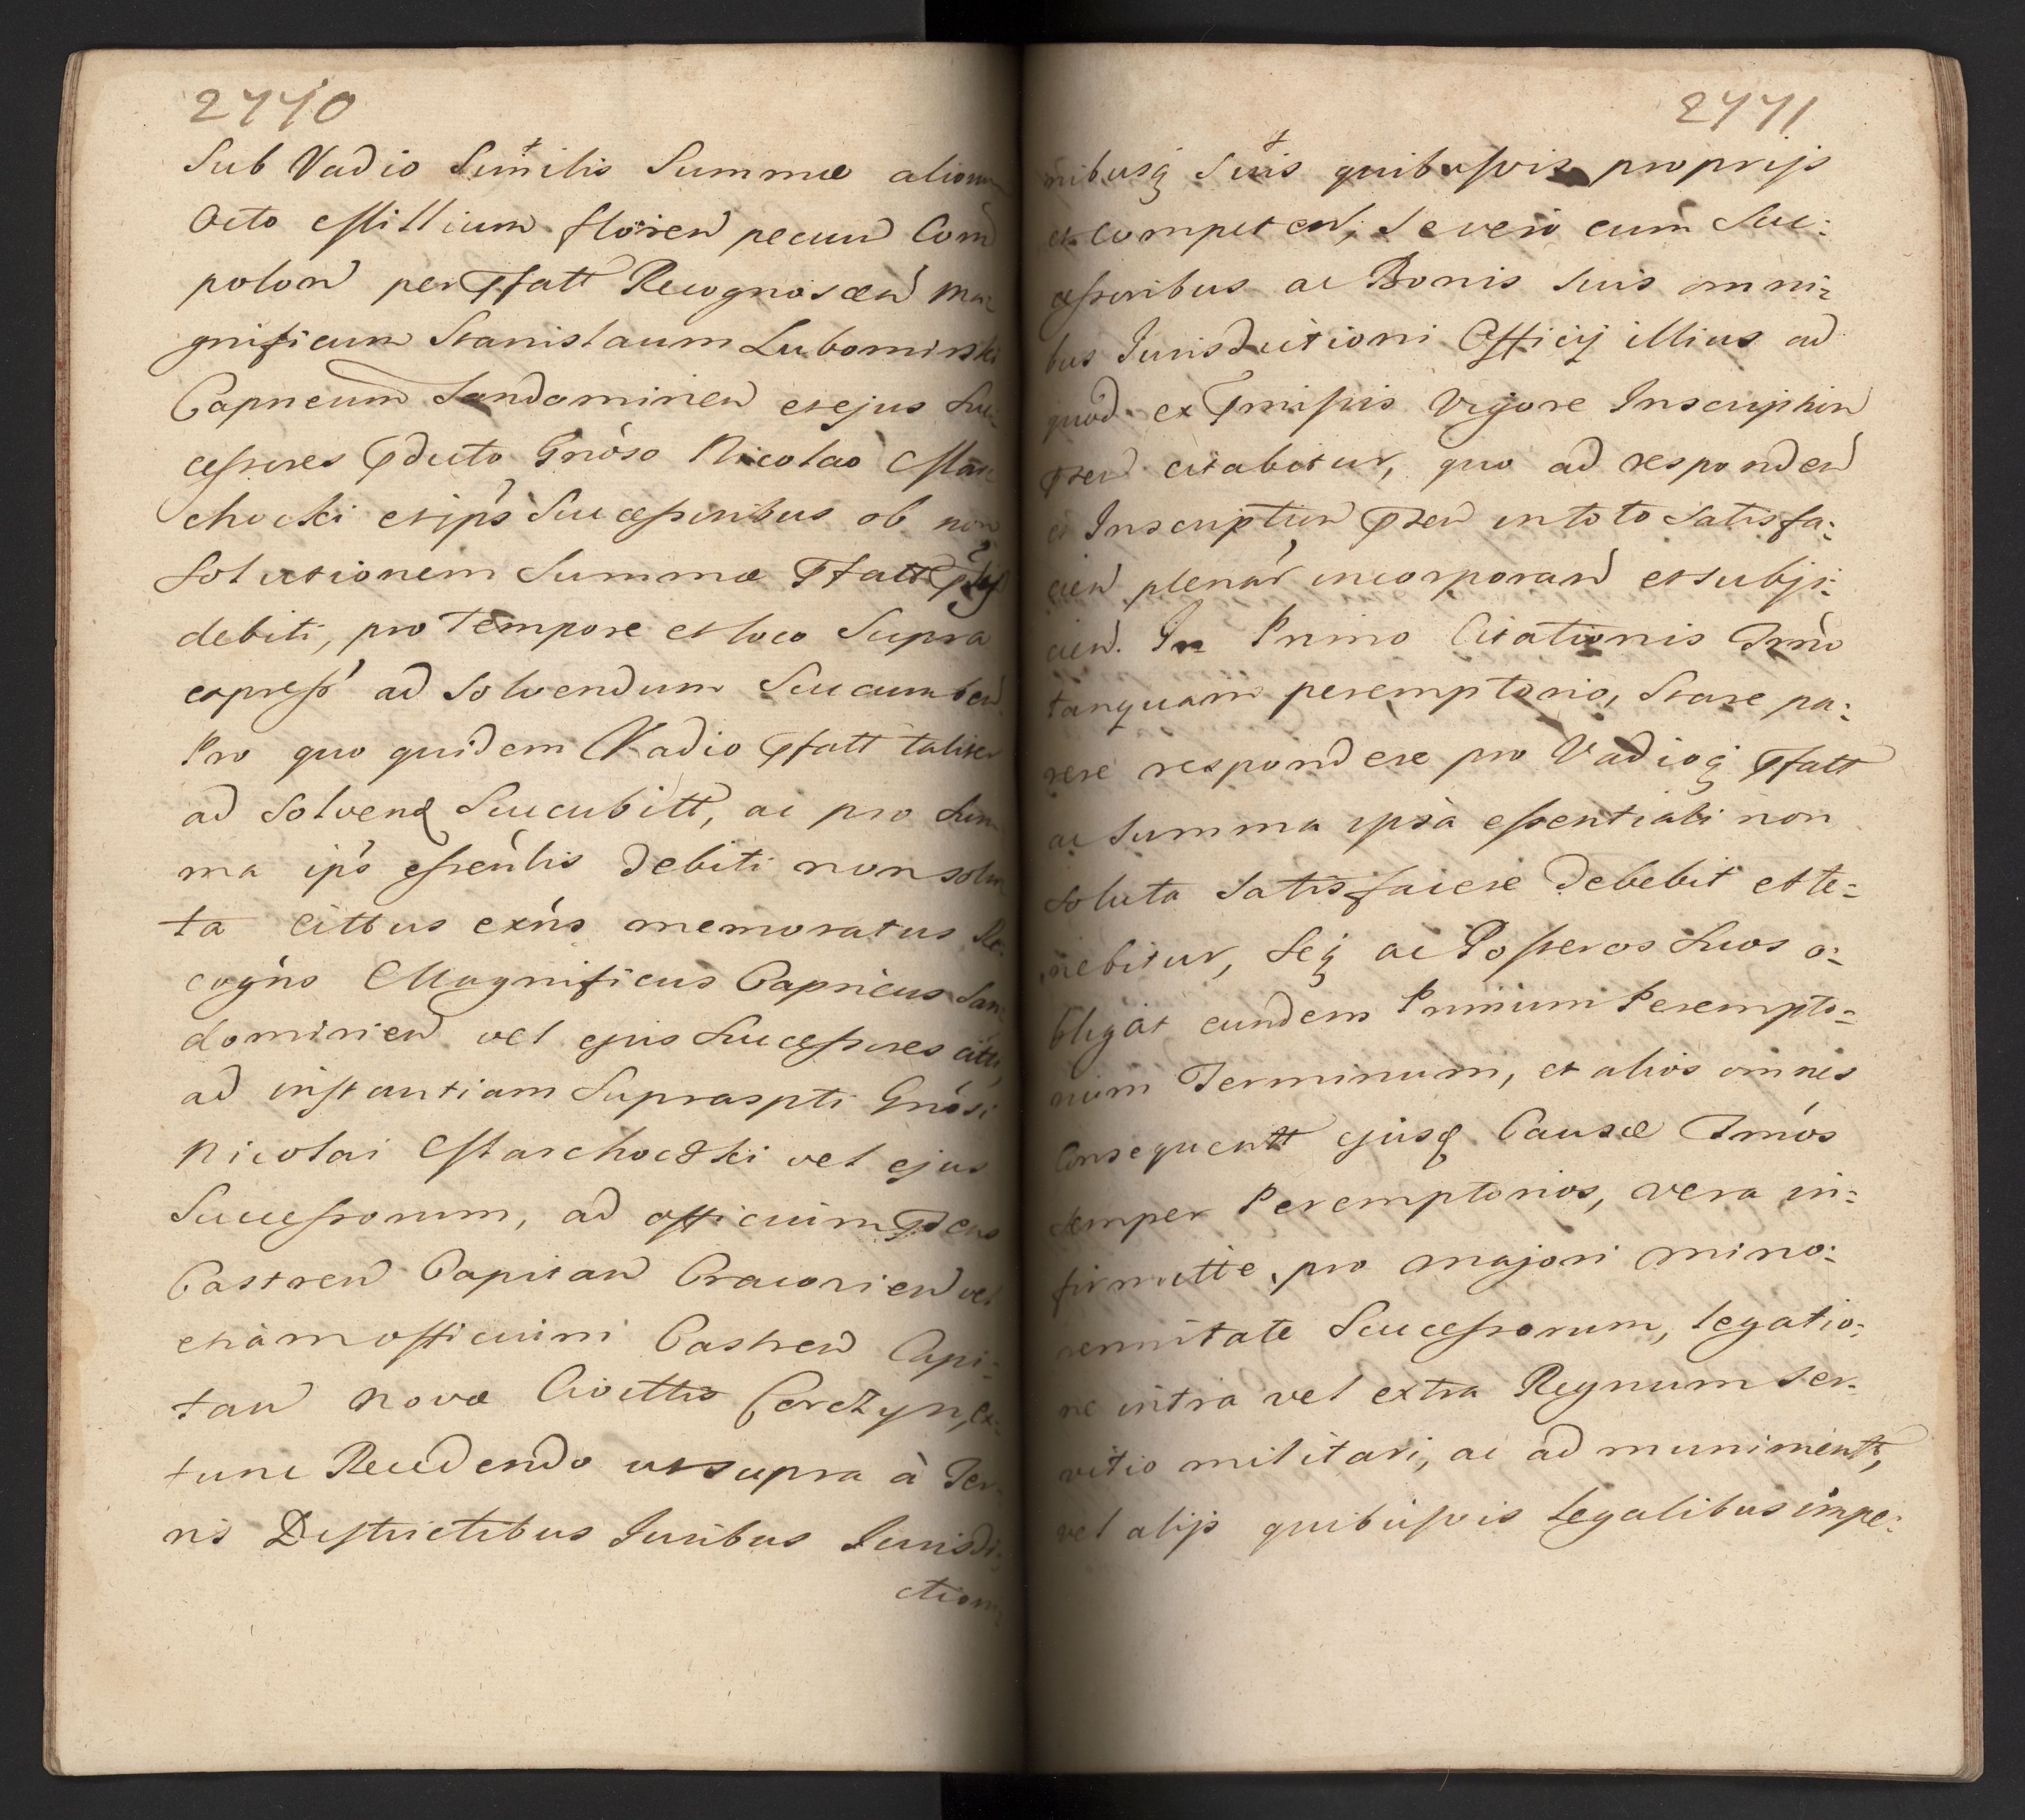 2770
Sub Vadio Similis Summæ aliorum
Octo Millium floren pecun Com
polon per Pfatt Recognoscen Ma-
gnificum Stanislaum Lubomirski
Capneum Sandomirien et ejus Suc-
cessores Pdicto Gnoso Nicolao Mar-
chocki et ips Successoribus ob non
Solutionem Summæ Pfatt
debiti, pro Tempore et loco Supra
express ad Solvendum Succumben
Pro quo quidem Vadio Pfatt taliter
ad Solvend Succubitt, ac pro Sum
ma ips essenlis debiti non solu
ta Cittus exns memoratus Re-
cogns Magnificus Capneus San-
domirien vel ejus Successores citti,
ad instantiam Supraspti Gnosi
Nicolai Marchocki vel ejus
Successorum, ad officium Pdens
Castren Capitan Cracovien vel
etiam officium Castren Capi-
tan Novæ Civittis Corczyn, ex-
tunc Recedendo ut supra à Ter-
ris Districtibus Juribus Jurisdi-
ctioni
2771
nibusq Suis quibusvis proprijs
et competen, Se vero cum Suc:
cessoribus ac Bonis suis omni:
bus Jurisdictioni Officij illius ad
quod ex Pmissis Vigore Inscriphin
Psen citabitur, quo ad responden
et Inscription Psen in toto Satisfa:
cien plenar incorporan et subji:
cien. In Primo Citationis Trmo
tanquam peremptorio, Stare pa:
rere respondere pro Vadioq Pfatt
ac Summa ipsa essentiali non
Soluta Satisfacere debebit et te:
nebitur, Seq ac Posteros Suos o:
bligat eundem Primum Perempto:
rium Terminum, et alios omnes
Consequentt ejusd Causæ Tmos
Semper Peremptorios, vera in:
firmitte, pro majori mino:
rennitate Successorum, legatio:
ne intra vel extra Regnum Ser:
vitio militari, ac ad munimentt,
vel alijs quibusvis Legalibus impe: